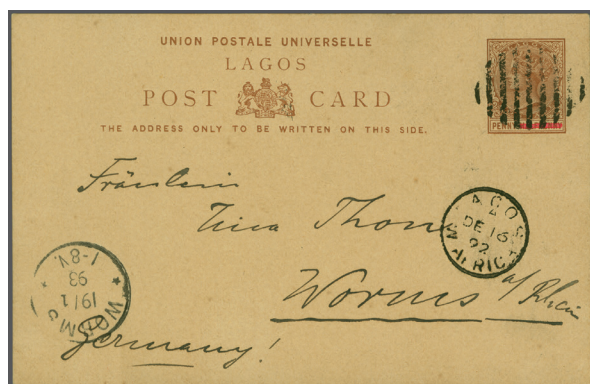 UNION POSTALE UNIVERSELLE
LAGOS
POST CARD
THE ADDRESS ONLY TO BE WRITTEN ON THIS SIDE.
PENNY
Fräulein
Thom
LAGOS
DE 16
92
W AFRICA
Worms a/Rhein
WORMS
19/1
93
1-8V.
Germany!